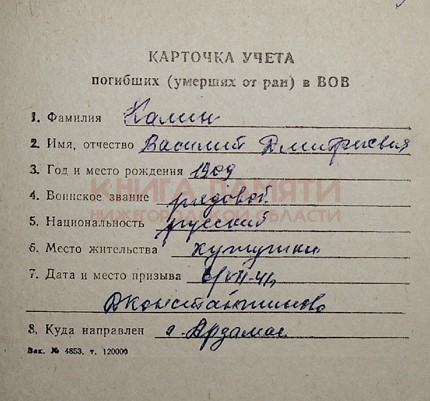 КАРТОЧКА УЧЕТА
погибших (умерших от ран) в ВОВ
1. Фамилия Калин
2. Имя, отчество Василий Дмитриевич
3. Год и место рождения 1909
КНИГА ПАМЯТИ
4. Воинское звание рядовой
НИЖЕГОРОДСКОЙ ОБЛАСТИ
5. Национальность русский
6. Место жительства
7. Дата и место призыва
Дконстантиново
8. Куда направлен г. Арзамас
Зак. № 4853. т. 120000